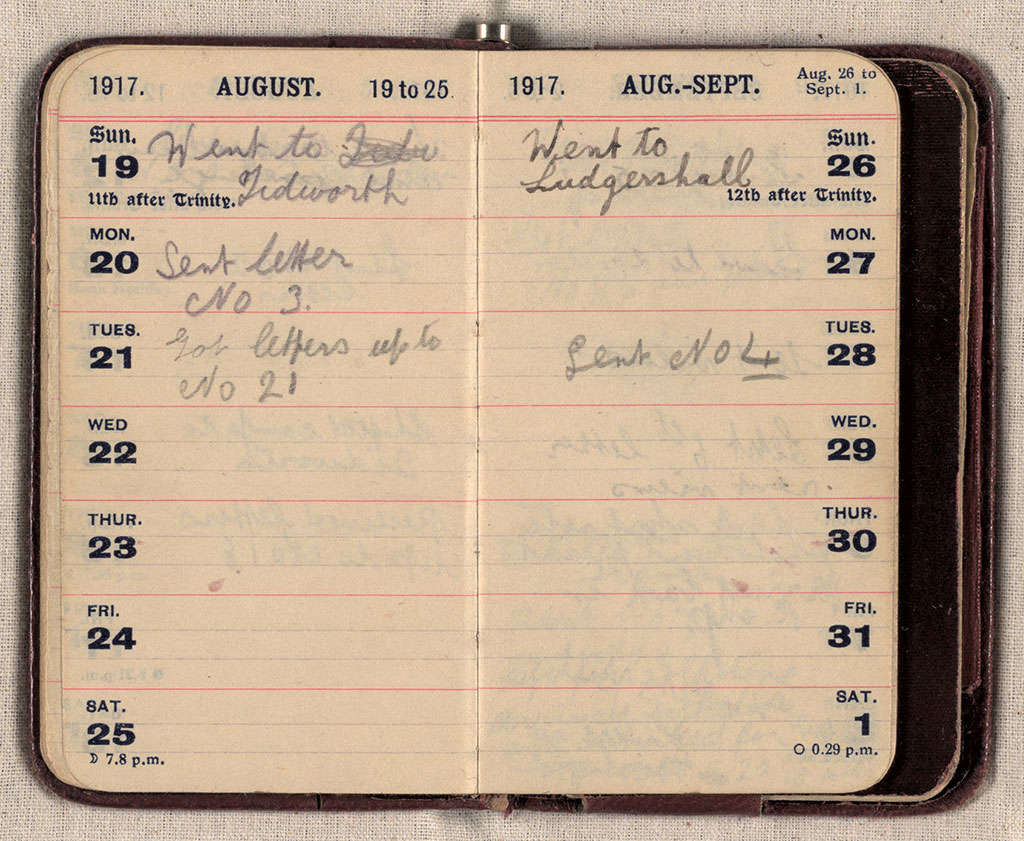 1917. AUGUST. 19 to 25.
Sun. Went to
19 Tidworth
11th after Trinity.
MON.
20 Sent letter
No 3.
TUES.
21 Got letters up to
No 21
WED
22
THUR.
23
FRI.
24
SAT.
25
☽ 7.8 p.m.
1917. AUG.-SEPT. Aug. 26 to
Sept. 1.
Went to Sun.
Ludgershall 26
12th after Trinity.
MON.
27
TUES.
Sent No 4 28
WED.
29
THUR.
30
FRI.
31
SAT.
1
○ 0.29 p.m.